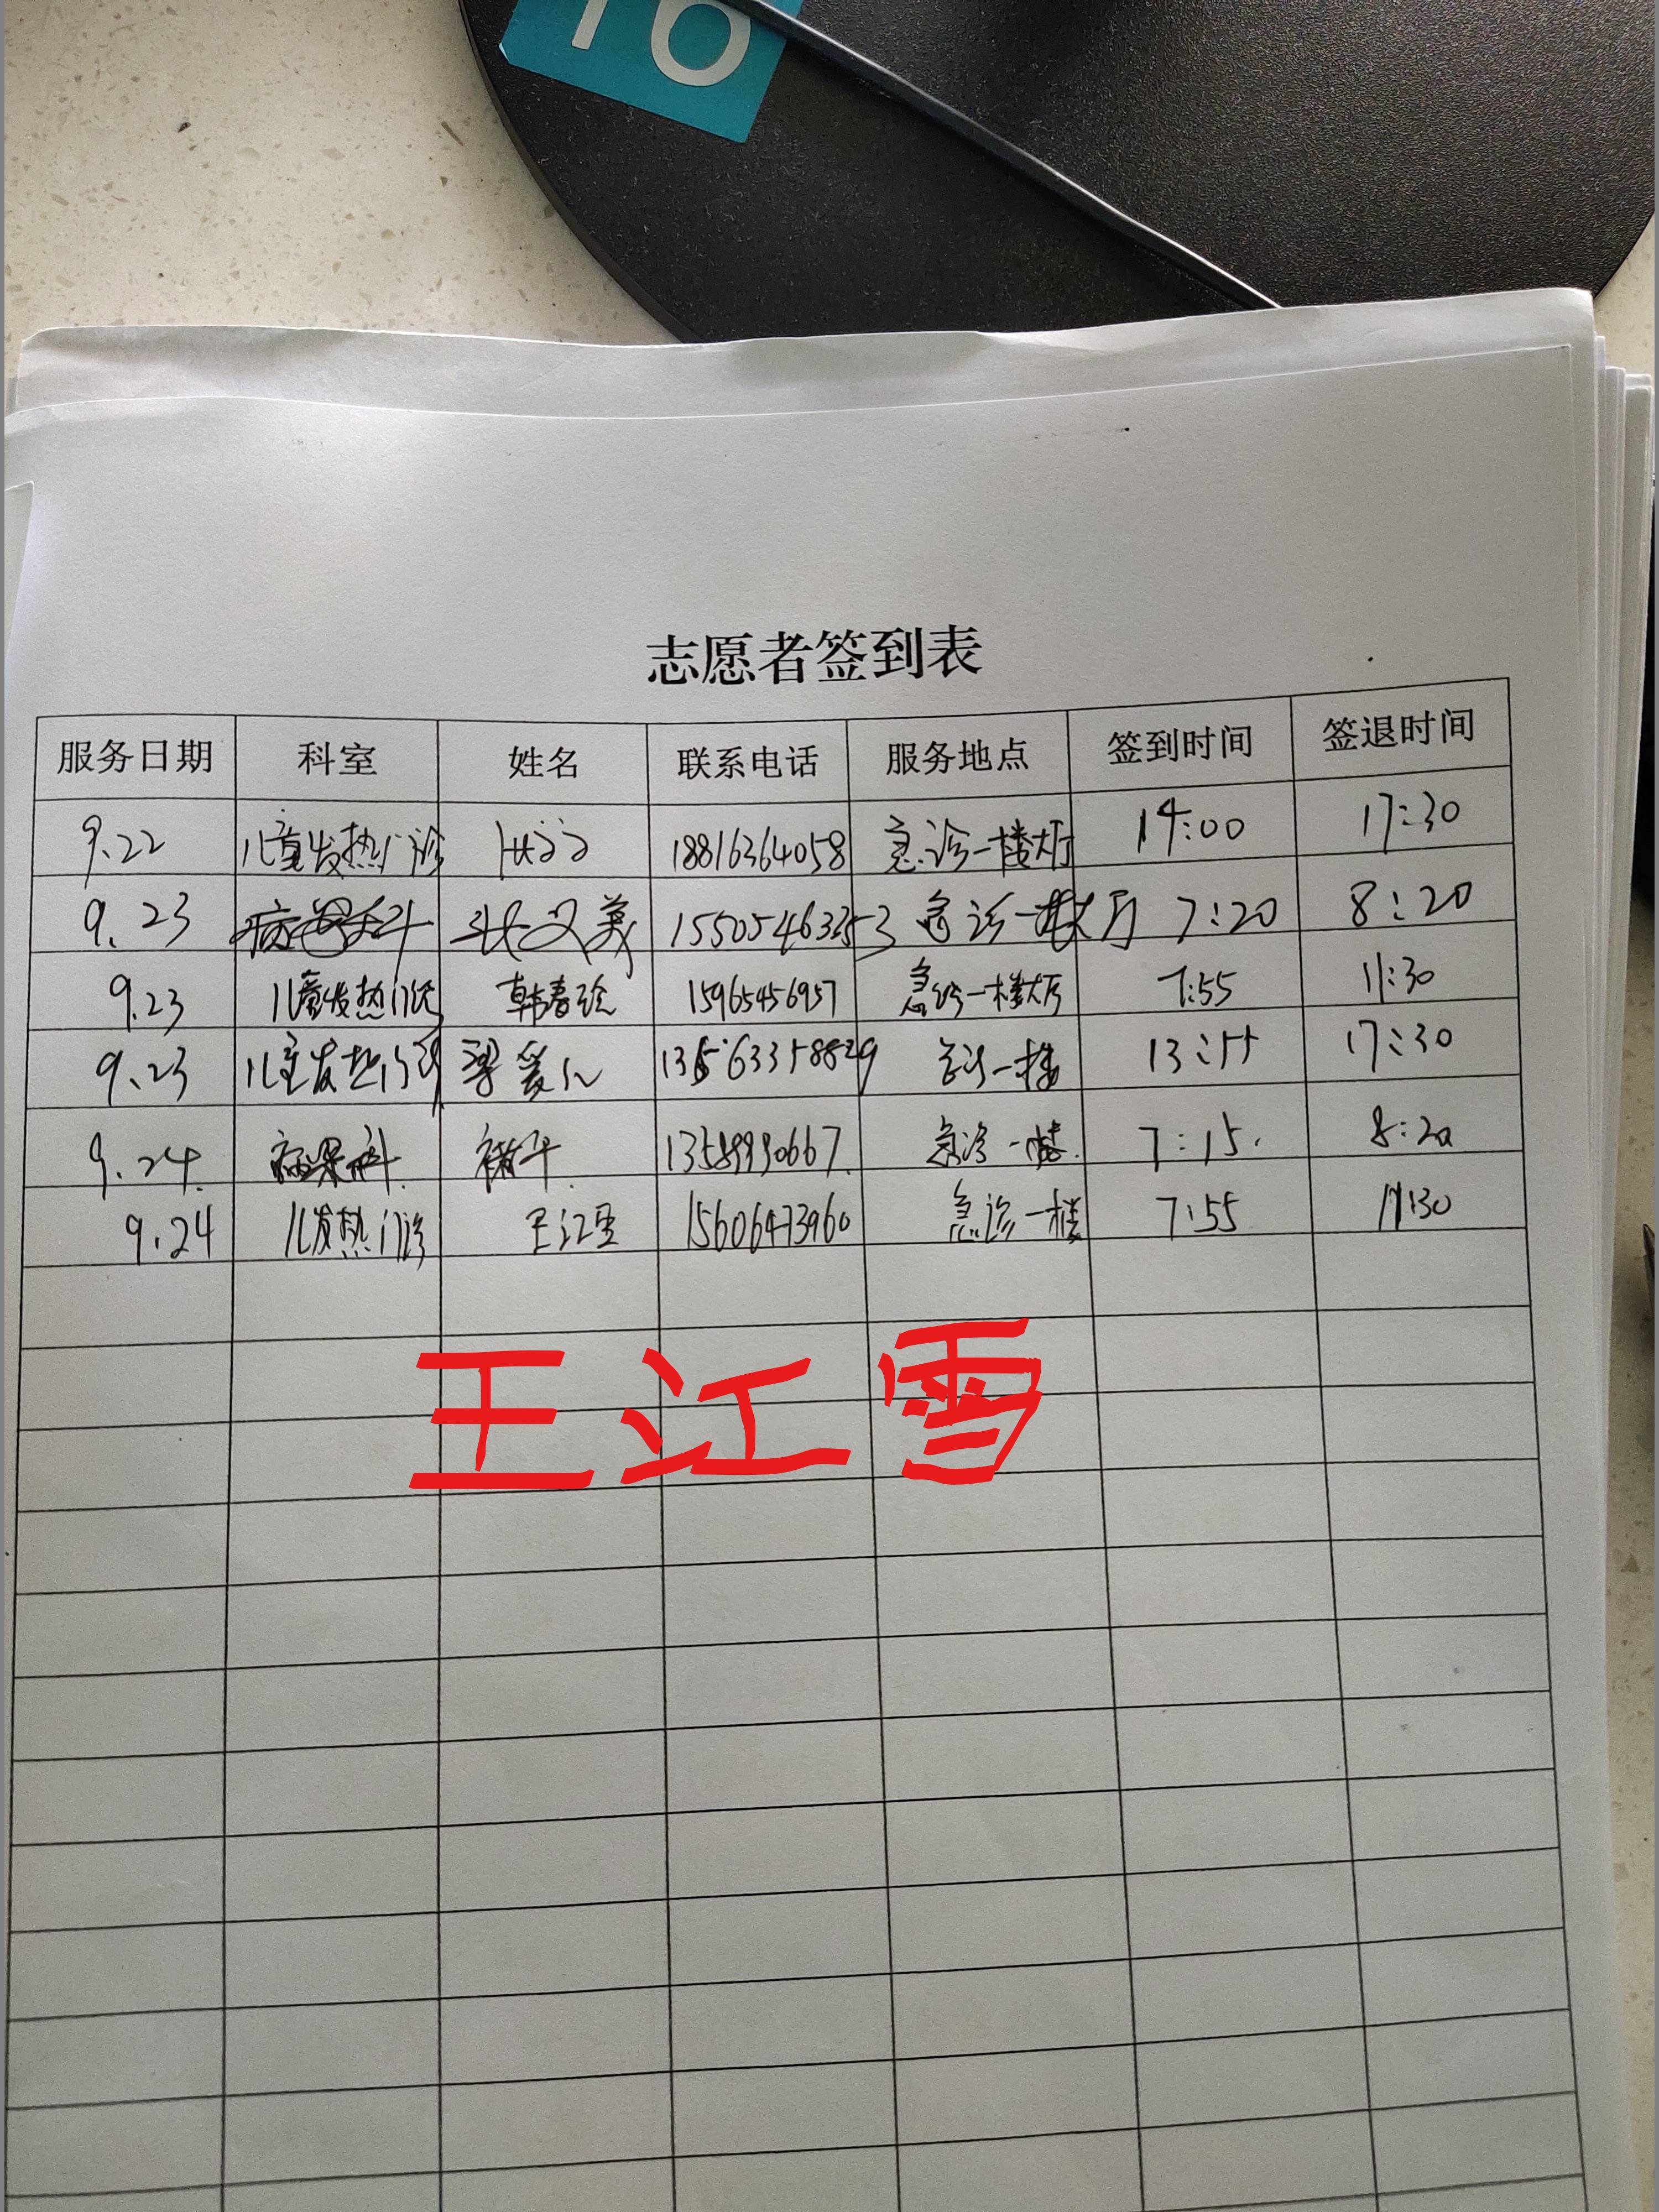 16
志愿者签到表
服务日期 科室 姓名 联系电话 服务地点 签到时间 签退时间
9.22 儿童发热门诊 18816364058 急诊一楼大厅 14:00 17:30
9.23 病案科 张又美 急诊一楼大厅 7:20 8:20
9.23 儿童发热门诊 韩春 15965456957 急诊一楼大厅 7:55 11:30
9.23 儿童发热门诊 梁爱 急诊一楼 13:55 17:30
9.24. 病案科. 急诊一楼. 7:15. 8:20
9.24 儿发热门诊 王江雪 15606473960 急诊一楼 7:55 11:30
王江雪